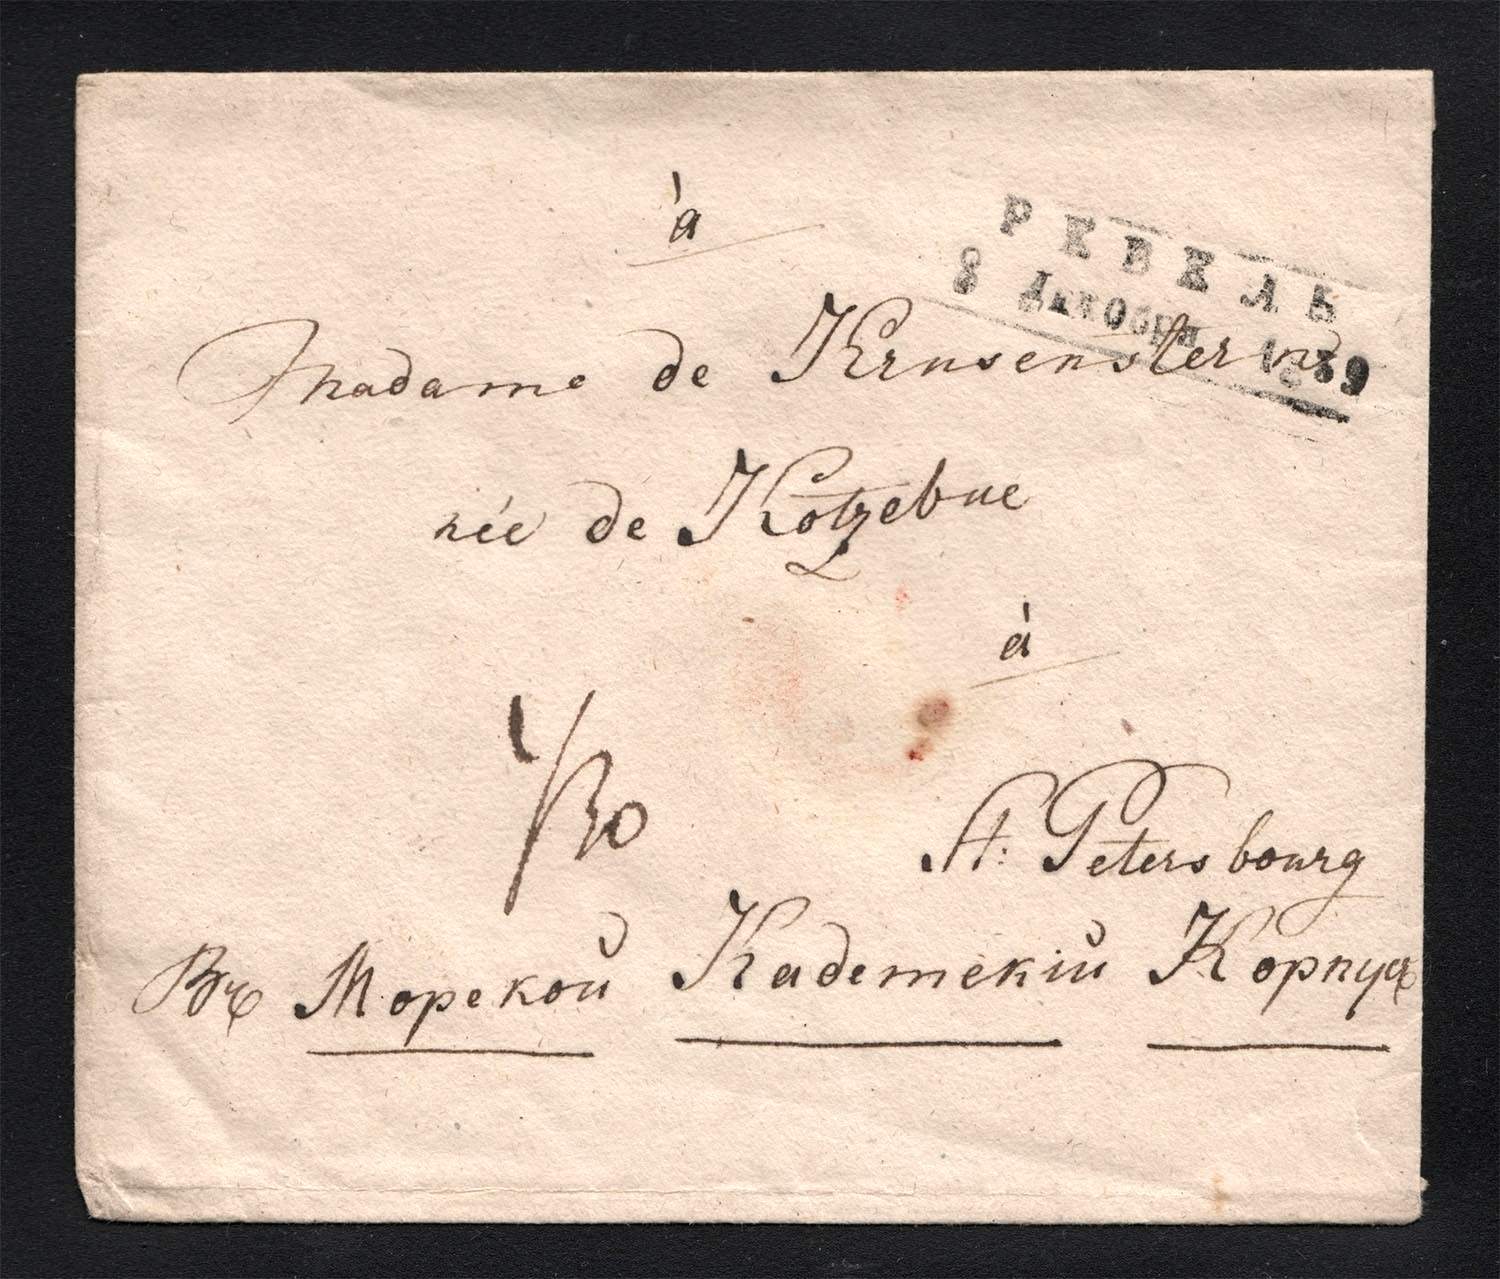 à
РЕВЕЛЬ
8 Декабря 1839
Madame de Krusenstern
née de Kotzebue
à
1/30
St: Petersbourg
Въ Морской Кадетскій Корпусъ